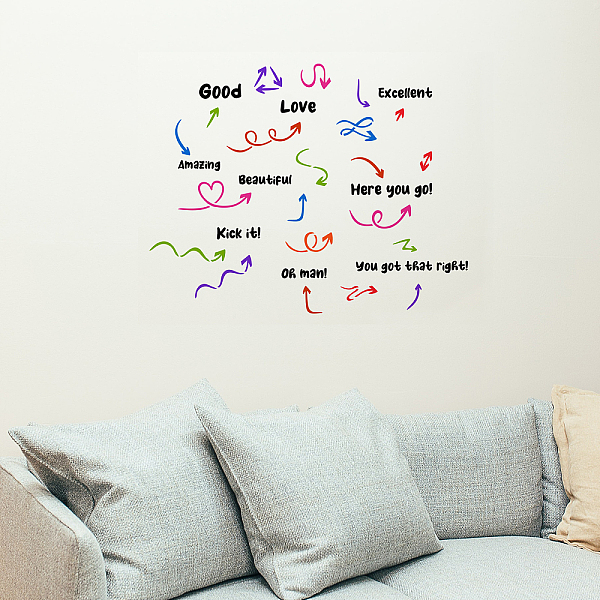 Good
Love
Excellent
Amazing
Beautiful
Here you go!
Kick it!
Oh man!
You got that right!